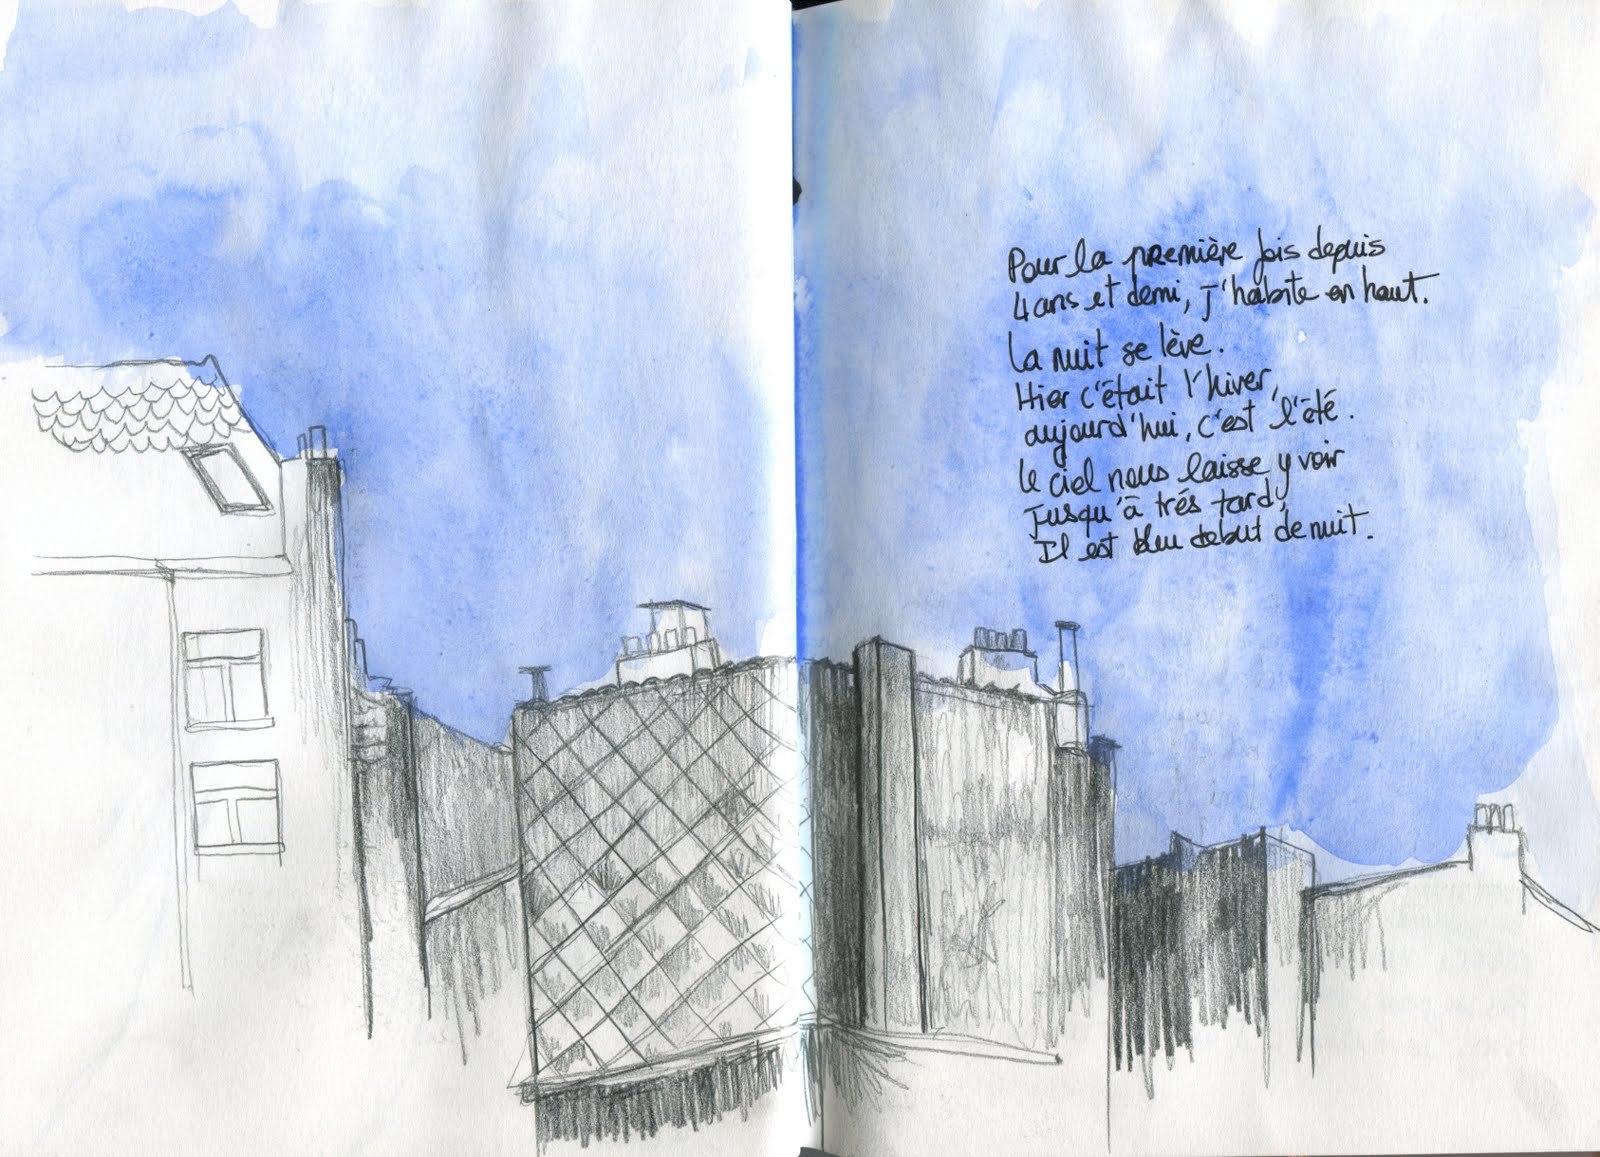 Pour la première fois depuis
4 ans et demi, j'habite en haut.
La nuit se lève.
Hier c'était l'hiver,
aujourd'hui, c'est l'été.
Le ciel nous laisse y voir
jusqu'à trés tard,
Il est bleu debut de nuit.